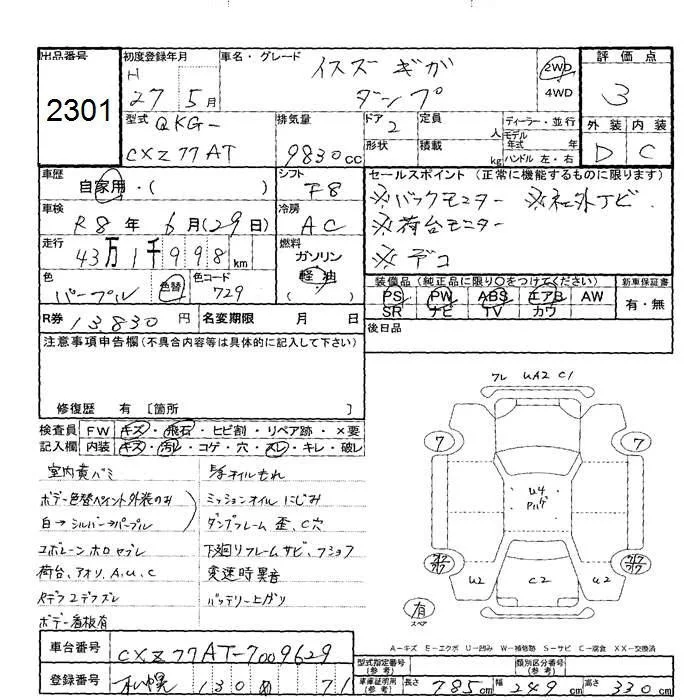 出品番号
2301
初度登録年月
H
27 5月
車名・グレード
イスズ ギガ
ダンプ
2WD
4WD
評価点
3
外装 内装
D C
型式 QKG-
CXZ77AT
排気量
9830cc
ドア 2
形状
定員
人
積載
kg
ディーラー・並行
モデル
年式 年
ハンドル 左・右
車歴
自家用・( )
シフト
F8
車検
R8年 6月(29日)
冷房
AC
走行
43万1千998km
燃料
ガソリン
軽油
( )
色
パープル
色替
色コード
729
R券 13,830円
名変期限 月 日
セールスポイント(正常に機能するものに限ります)
※バックモニター ※社外ナビ.
※荷台モニター
※デコ
装備品(純正品に限り○をつけてください)
新車保証書
PS PW ABS エアB AW
SR ナビ TV カワ
有・無
後日品
注意事項申告欄(不具合内容等は具体的に記入して下さい)
修復歴 有 [箇所 ]
検査員
記入欄
FW キズ・飛石・ヒビ割・リペア跡・×要
内装 キズ・汚レ・コゲ・穴・スレ・キレ・破レ
室内黄バミ
ボデー色替ペイント外装のみ
白→シルバー→パープル
コボレーン ホロ セブレ
荷台、アオリ、A、U、C
Rデフ エデフズレ
ボデー看板有
オイルもれ
ミッションオイルにじみ
ダンプフレーム 歪、C穴
下廻りフレームサビ、フショク
変速時異音
バッテリー上がり
フレ UA2 C1
7 7
U4
U2 C2 U2
有
スペア
A-キズ E-エクボ U-凹み W-補修跡 S-サビ C-腐食 XX-交換済
車台番号
CXZ77AT-7009629
登録番号
札幌 130 71
型式指定番号
(参考)
類別区分番号
(参考)
車庫証明用
(参考)
長さ 785cm 幅 249cm 高さ 330cm